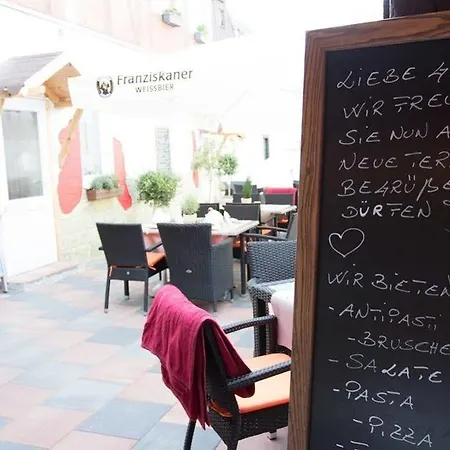 Franziskaner
WEISSBIER
LIEBE
WIR FREU
SIE NUN A
NEUE TER
BEGRÜßE
DÜRFEN
WIR BIETEN
- ANTIPASTI
- BRUSCHE
- SALATE
- PASTA
- PIZZA